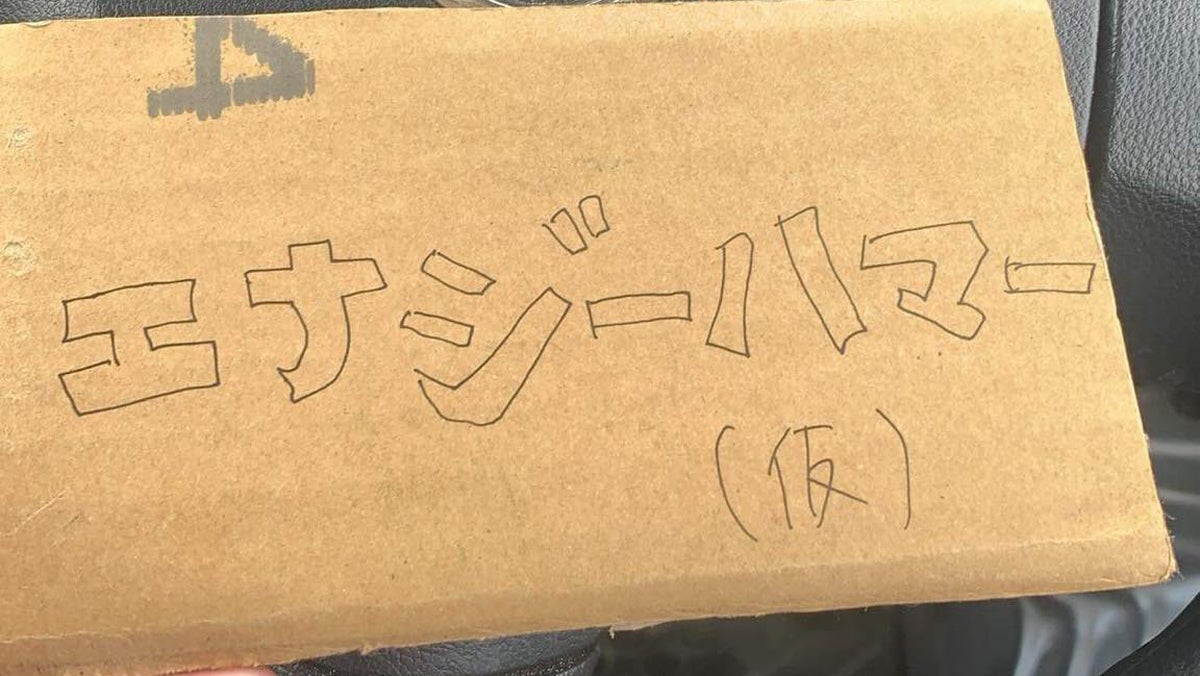 4
エナジーハマー
（仮）